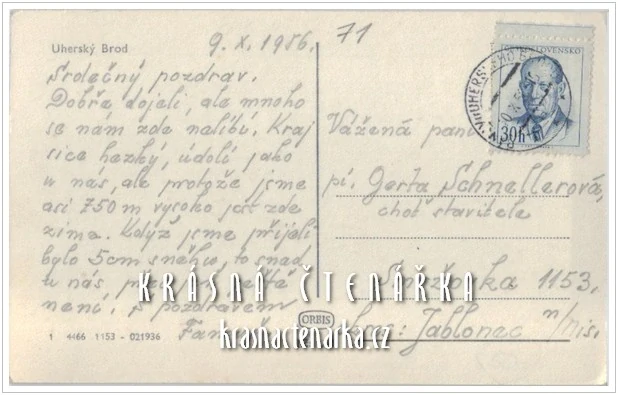 Uherský Brod
9. X. 1956.
71
Srdečný pozdrav.
Dobře dojeli, ale mnoho
se nám zde nelíbí. Kraj
sice hezký, údolí jako
u nás, ale protože jsme
asi 750 m vysoko jest zde
zima. Když jsme přijeli
bylo 5cm sněhu, to snad
u nás ještě
není, s pozdravem
ČESKOSLOVENSKO
30h
Vážená paní
pí. Gerta Schnellerová,
choť stavitele
1153.
Jablonec n/Nis.
KRÁSNÁ ČTENÁŘKA
krasnactenarka.cz
ORBIS
1 4466 1153 - 021936